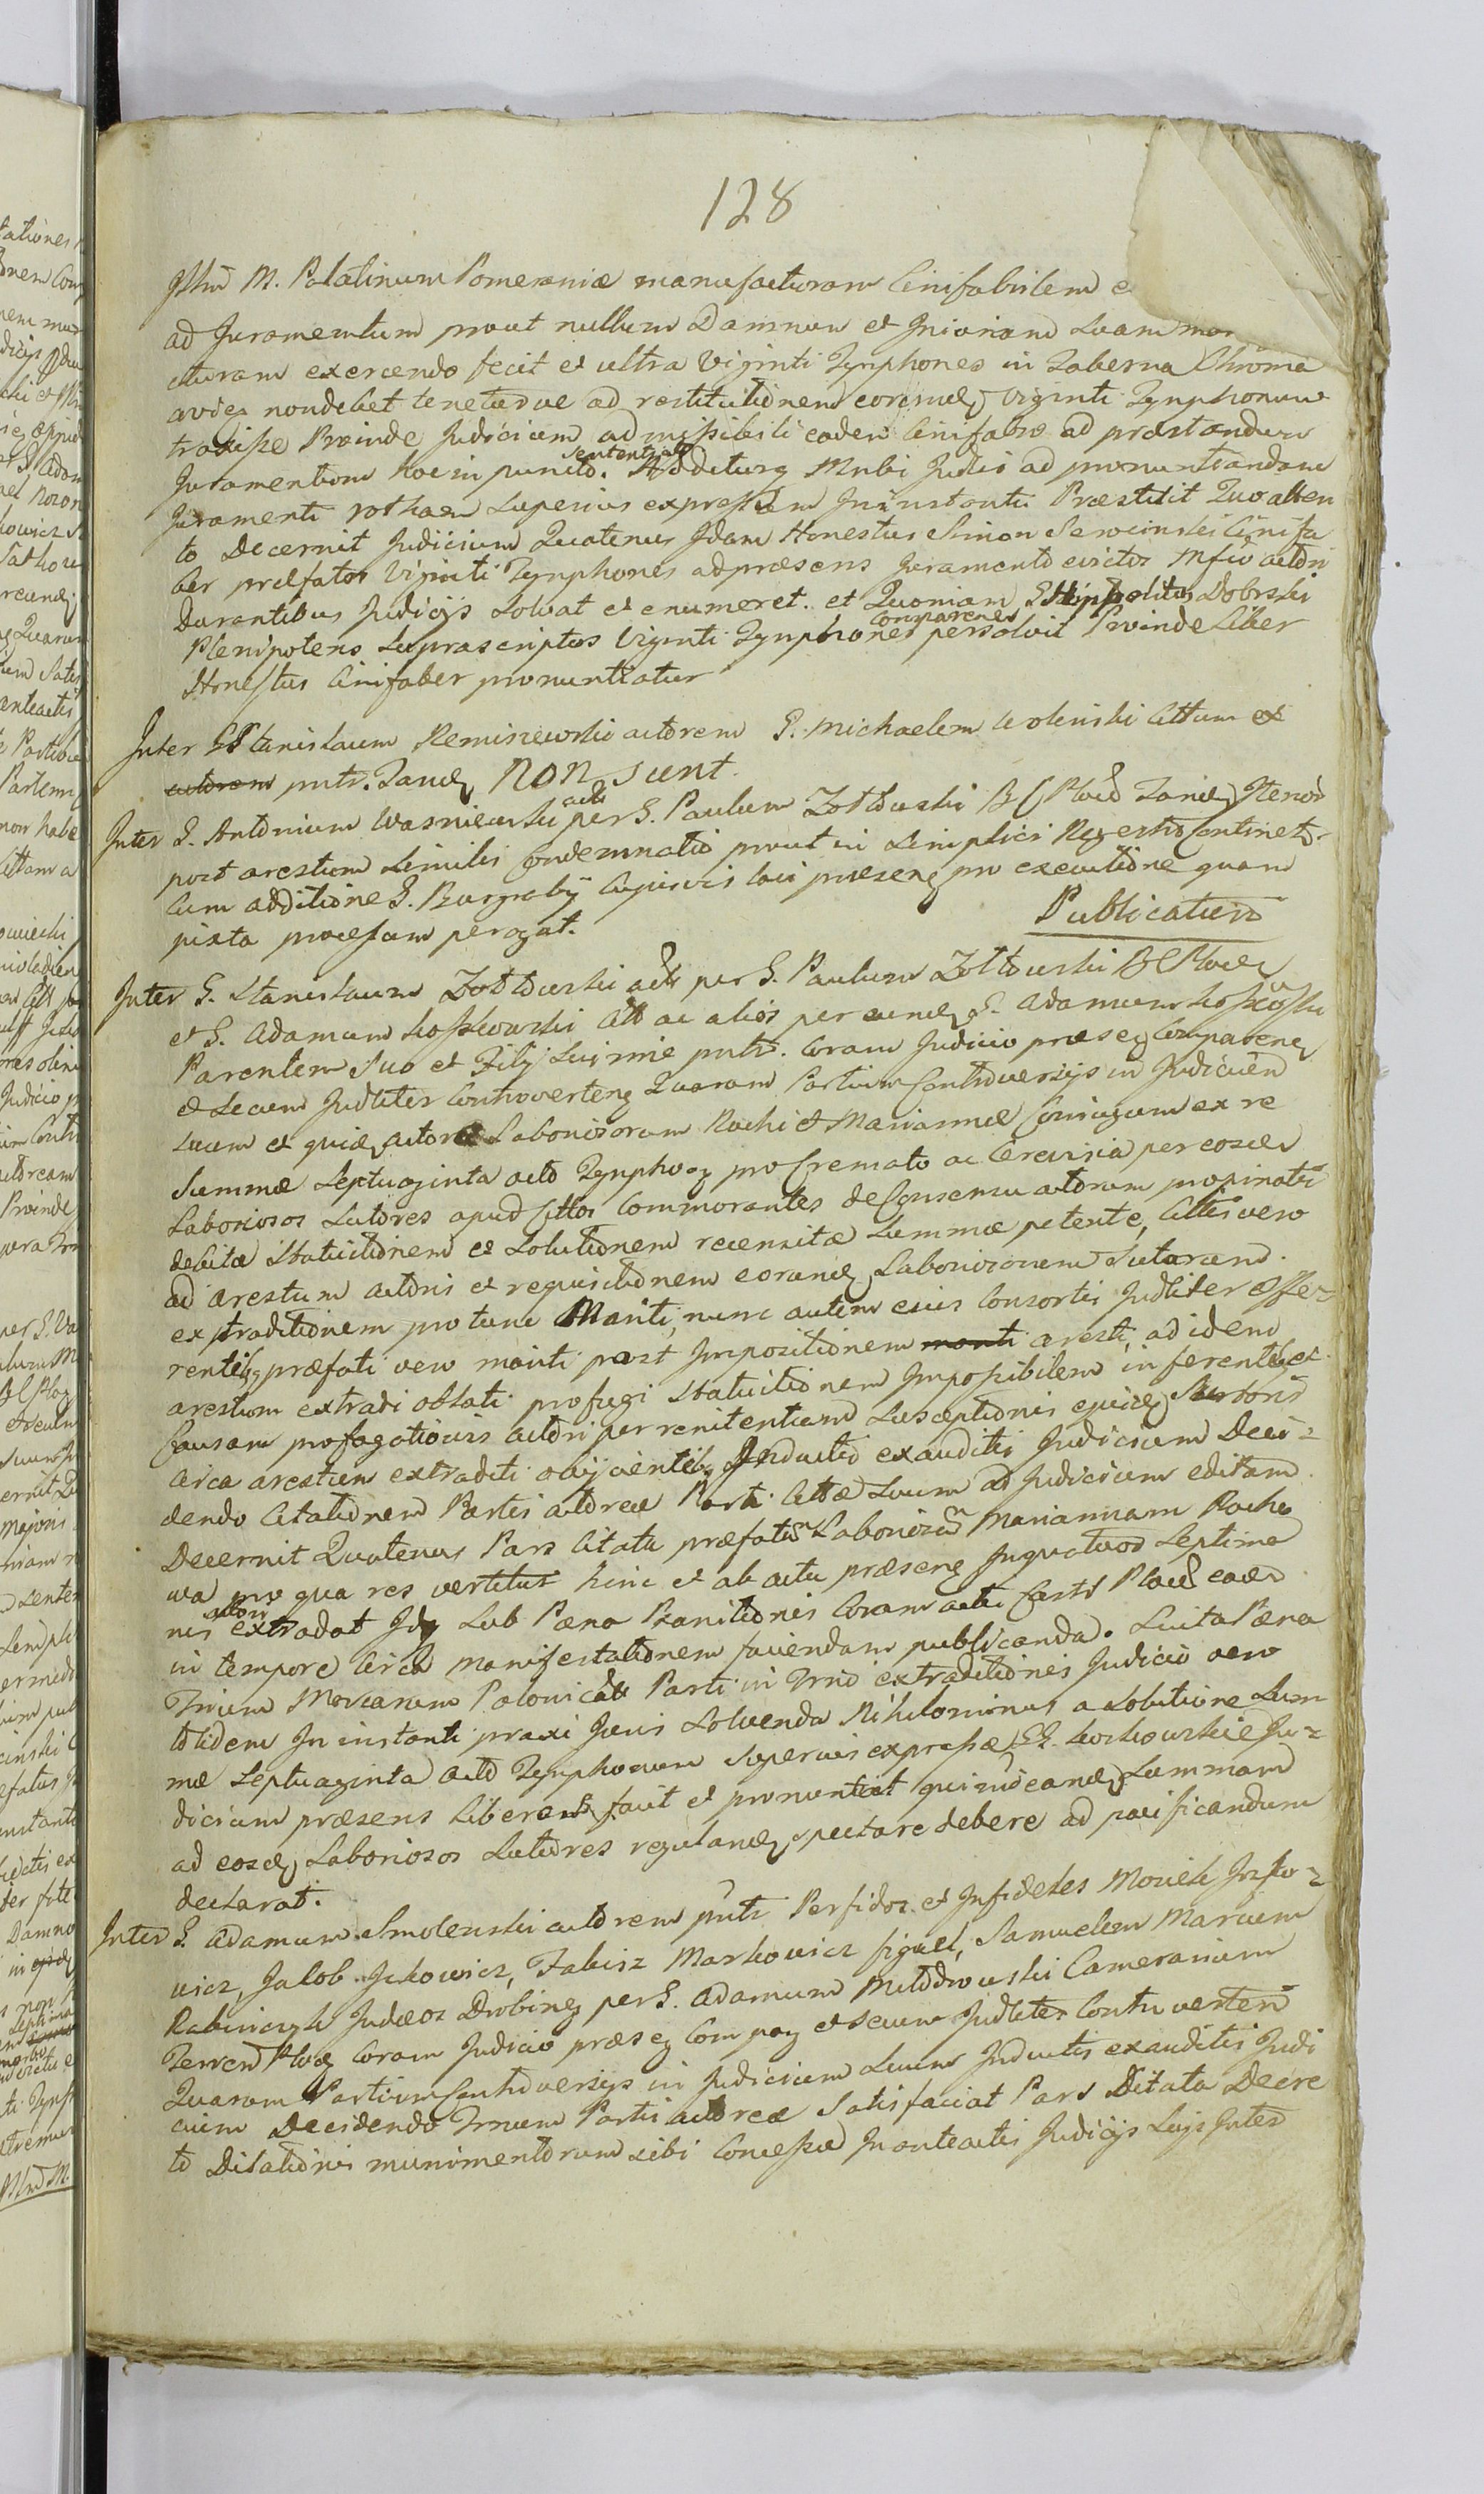 128
M. Palatinum Pomeraniæ manufacturam Cinifabrilem
ad Juramentum prout nullum Damnum et Injuriam Suam
cturam exercendo fecit et ultra Viginti Tynphones in Taberna
nondebet teneturve ad restitutionem eorund Viginti Tynphonum
traxisse Proinde Judicium admissibili eadem Cinifabro ad præstandum
Juramentum hoc in puncto. sententiato Additurq Mnbi Judio ad pronuntiandam
Juramenti rotham superius expressam In instanti Præstitit Quo atten
to Decernit Judicium Quatenus Idem Honestus Simon Serocinski Cinifa
ber præfatos Viginti Tynphones ad præsens Juramento evictos Mfco actori
Durantibus Judicijs Solvat et enumeret. et Quoniam G Hippolitus Dobrski
Plenipotens Suprascriptos Viginti Tynphones comparenes persolvit Proinde Liber
Honestus Cinifaber pronuntiatur
Inter G Stanislaum Remiszewski actorem G. Michaelem Wolenski Cittum ex
actorem pntr. Tand NON sunt.
Inter G. Antonium Wasniewski actr per G. Paulum Zottowski B C Ploc Tand Itenor
post arestum Similis Condemnatio prout in Simplici Regestro Continetr.
Cum additione G. Burgraby Cujusvis loci præsenq pro executione quam
juxta processum peragat.
Publicatum
Inter G. Stanislaum Zottowski actr per G. Paulum Zottowski B C Ploc
et G. Adamum Koszkowski Citt ac alios per eund G. Adamum
Parentem Suo et Filij Sui nnie pntr. Coram Judicio præseq Comparenq
et Secum Judliter Controvertenq Quarum Partium Controversijs in Judicium
Suam et quid actor Laboriosorum Rochi et Mariannæ Coniugum ex re
Summæ Septuaginta acto Tynphoq pro Cremato ac Cerevisia per eosd
Laboriosos Sutores apud Cittos Commorantes de Consensu actorum propinati
debitæ Statuitionem et Solutionem recensitæ Summæ petente, Cittis vero
ad arestum actoris et requisitionem eorund Laboriosorum Sutorum
extraditionem pro tunc Mariti, nunc autem eius Consortis Judliter offe=
rentibq præfati vero mariti post Impositionem mariti aresti, ad idem
arestum extradi oblati profugi Statuitionem Impossibilem inferentibq et
Causam profugationis actori per renitentiam Susceptionis ejusd Sutoris
circa arestum extraditi objicientibq Inductis exauditis Judicium Deci=
dendo Citationem Partis actoreæ Parti Cittæ Suum ad Judicium editam
Decernit Quatenus Pars Citata præfatam Laboriosam Mariannam Rocho
wa pro qua res vertitur hinc et ab actu præsenq In quatuor Septima
nis actori extradat Idq Sub Pæna Banitionis Coram actis Castr Ploc eaed
in tempore Circa manifestationem faciendam publicanda. Luita Pæna
Trium Marcarum Polonical Parti in Trno extraditionis Judicio vero
totidem In instanti praxi Juris Solvenda Nihilominus a Solutione Sum
mæ Septuaginta acto Tynphonum Superius expressæ GG. Koszkowskie Ju=
dicium præsens liberos facit et pronuntiat quinimo eand Summam
ad eosd Laboriosos Sutores reguland spectare debere ad pacificandum
declarat.
Inter G. Adamum Smolenski actorem pntr Perfidos et Infideles Mosiek Josko=
wicz, Jakob Jckowicz, Fabisz Markowicz figiel, Samuelem Marcum
Rabinczyk Judæos Drobinq per G. Adamum Młodzowski Camerarium
Terren Ploq Coram Judicio præseq Compaq et Secum Judliter Controverten
Quarum Partium Controversijs in Judicium Suum Inductis exauditis Judi
cium Decidendo Trnum Partis actoreæ Satisfaciat Pars Citata Decre
to Dilationis munimentorum sibi Concessæ In anteactis Judicijs Suis Inter